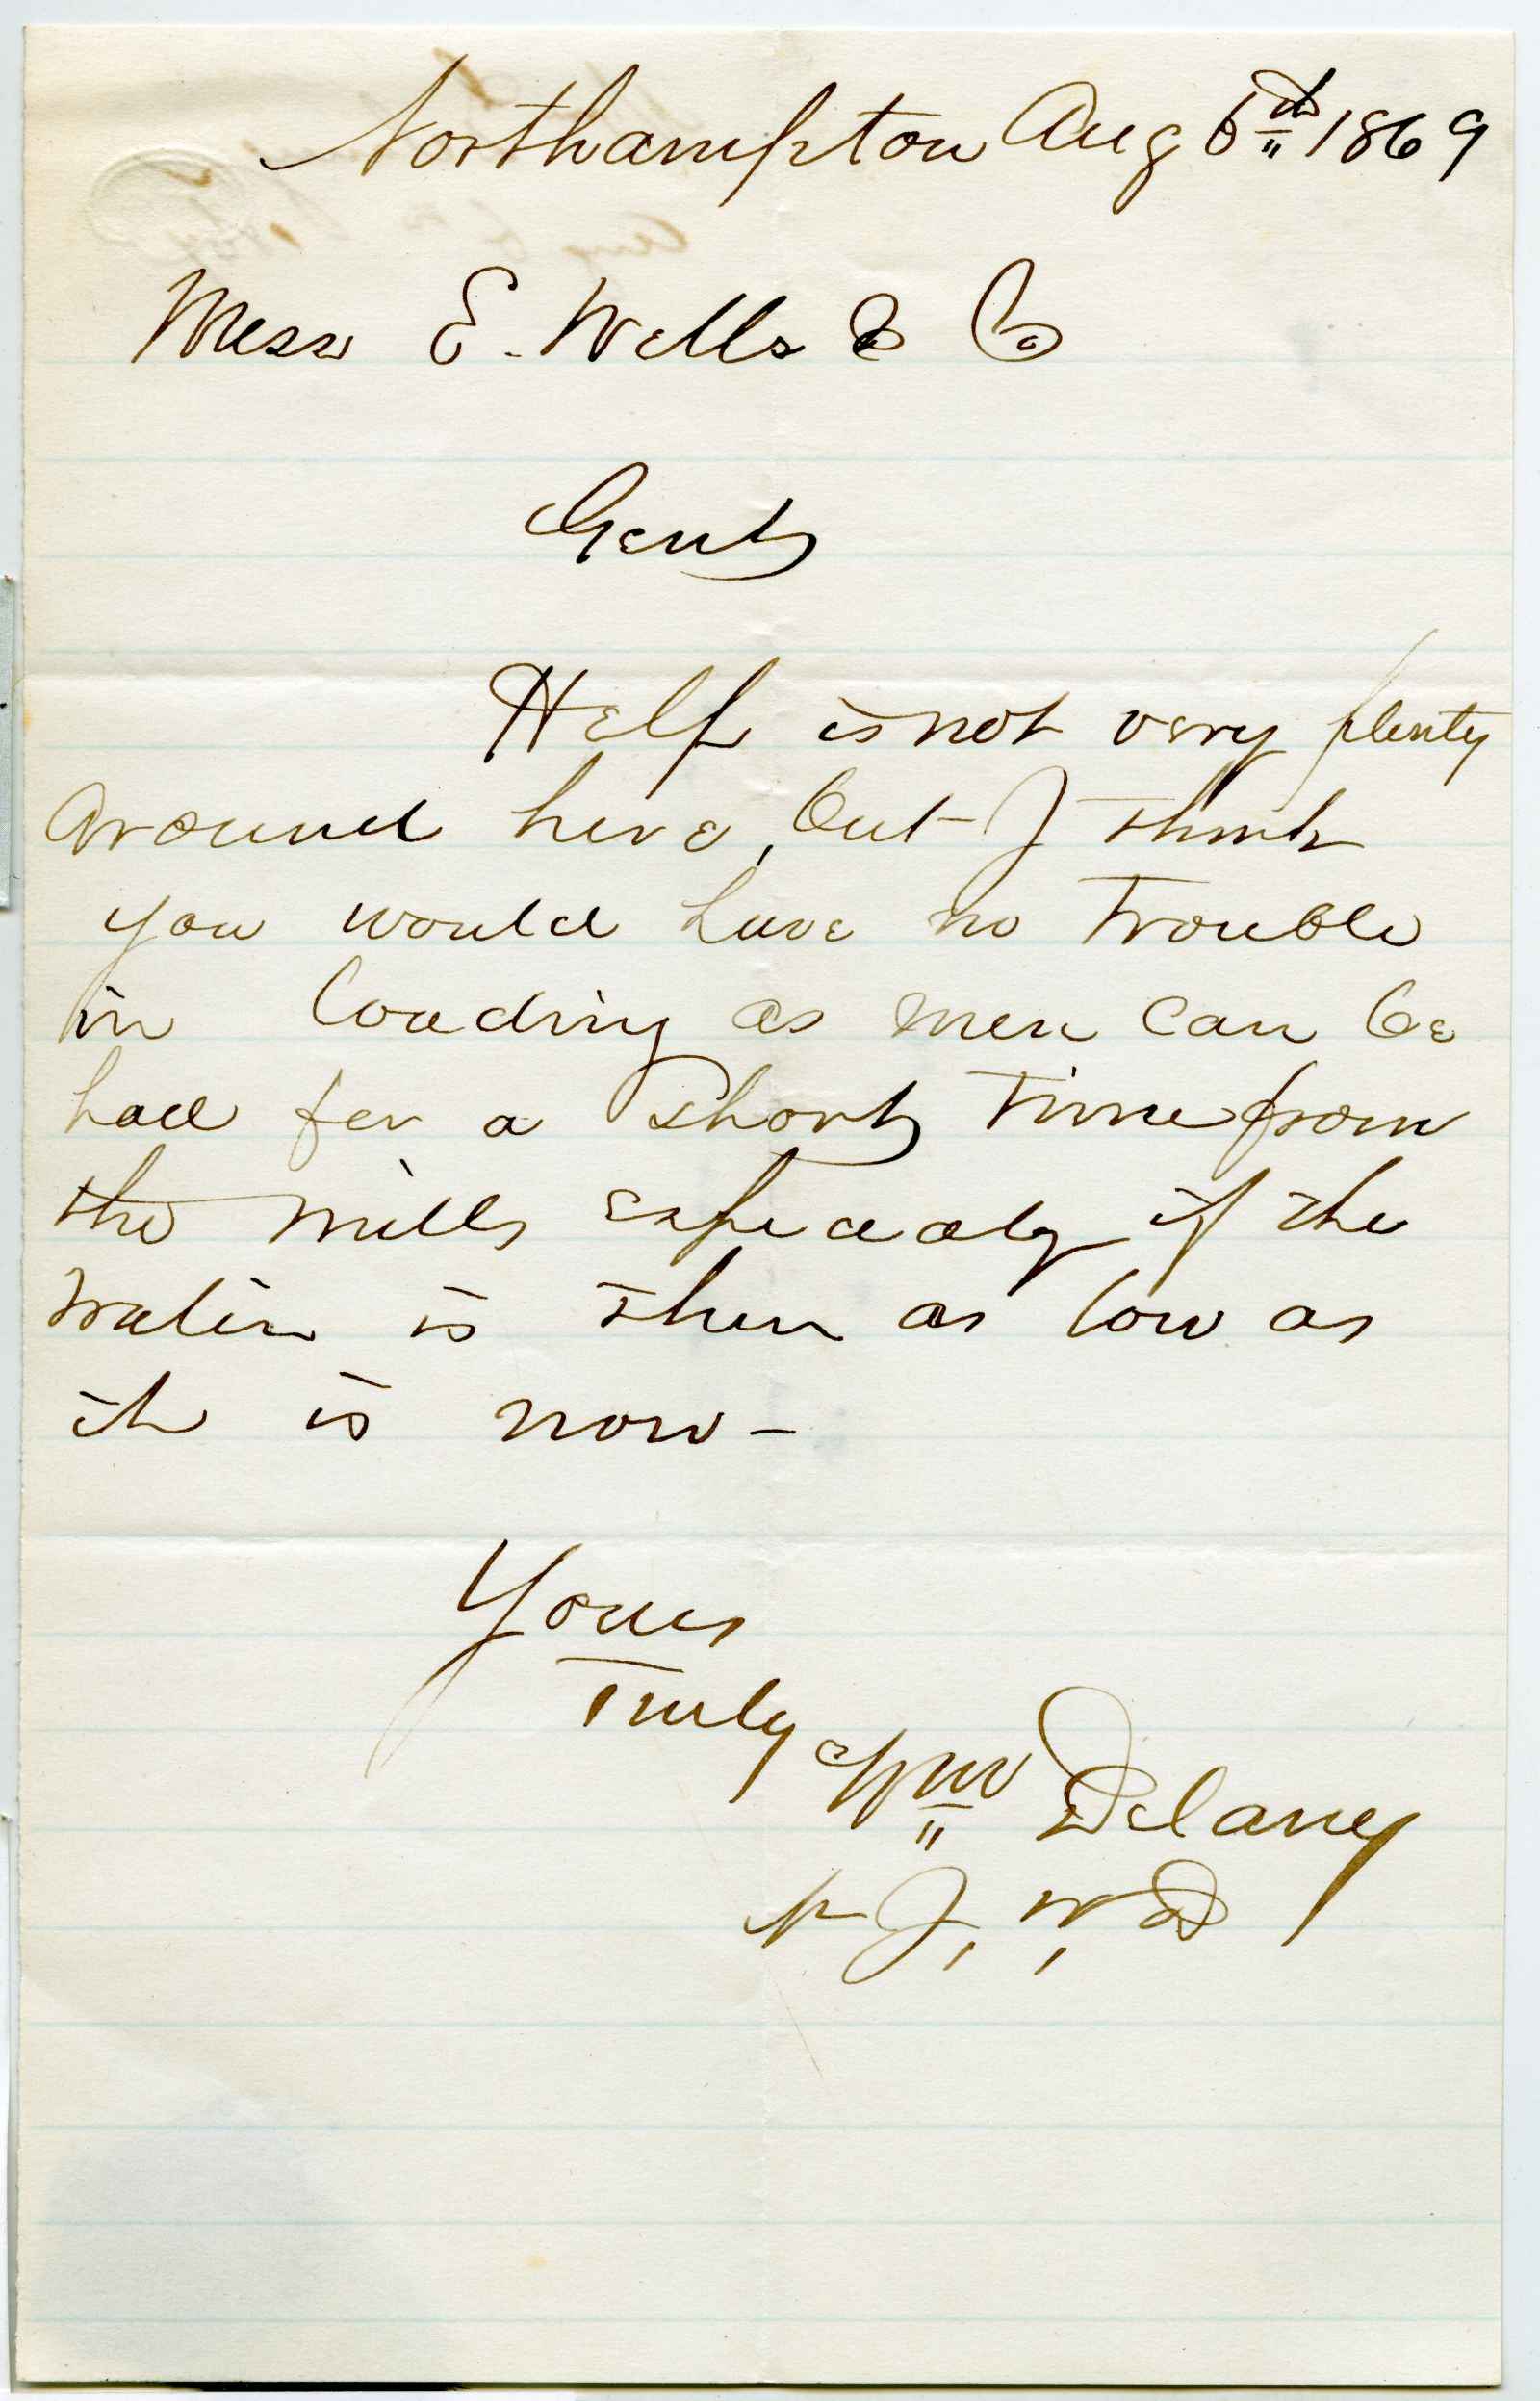 Northampton Aug 6th 1869
Mess E. Wells & Co
Gents
Help is not very plenty
around here, but I think
you would have no trouble
in loading as men can be
had for a short time from
the mills especialy if the
water is then as low as
it is now –
Yours
Truly
Wm Delaney
J. W. D